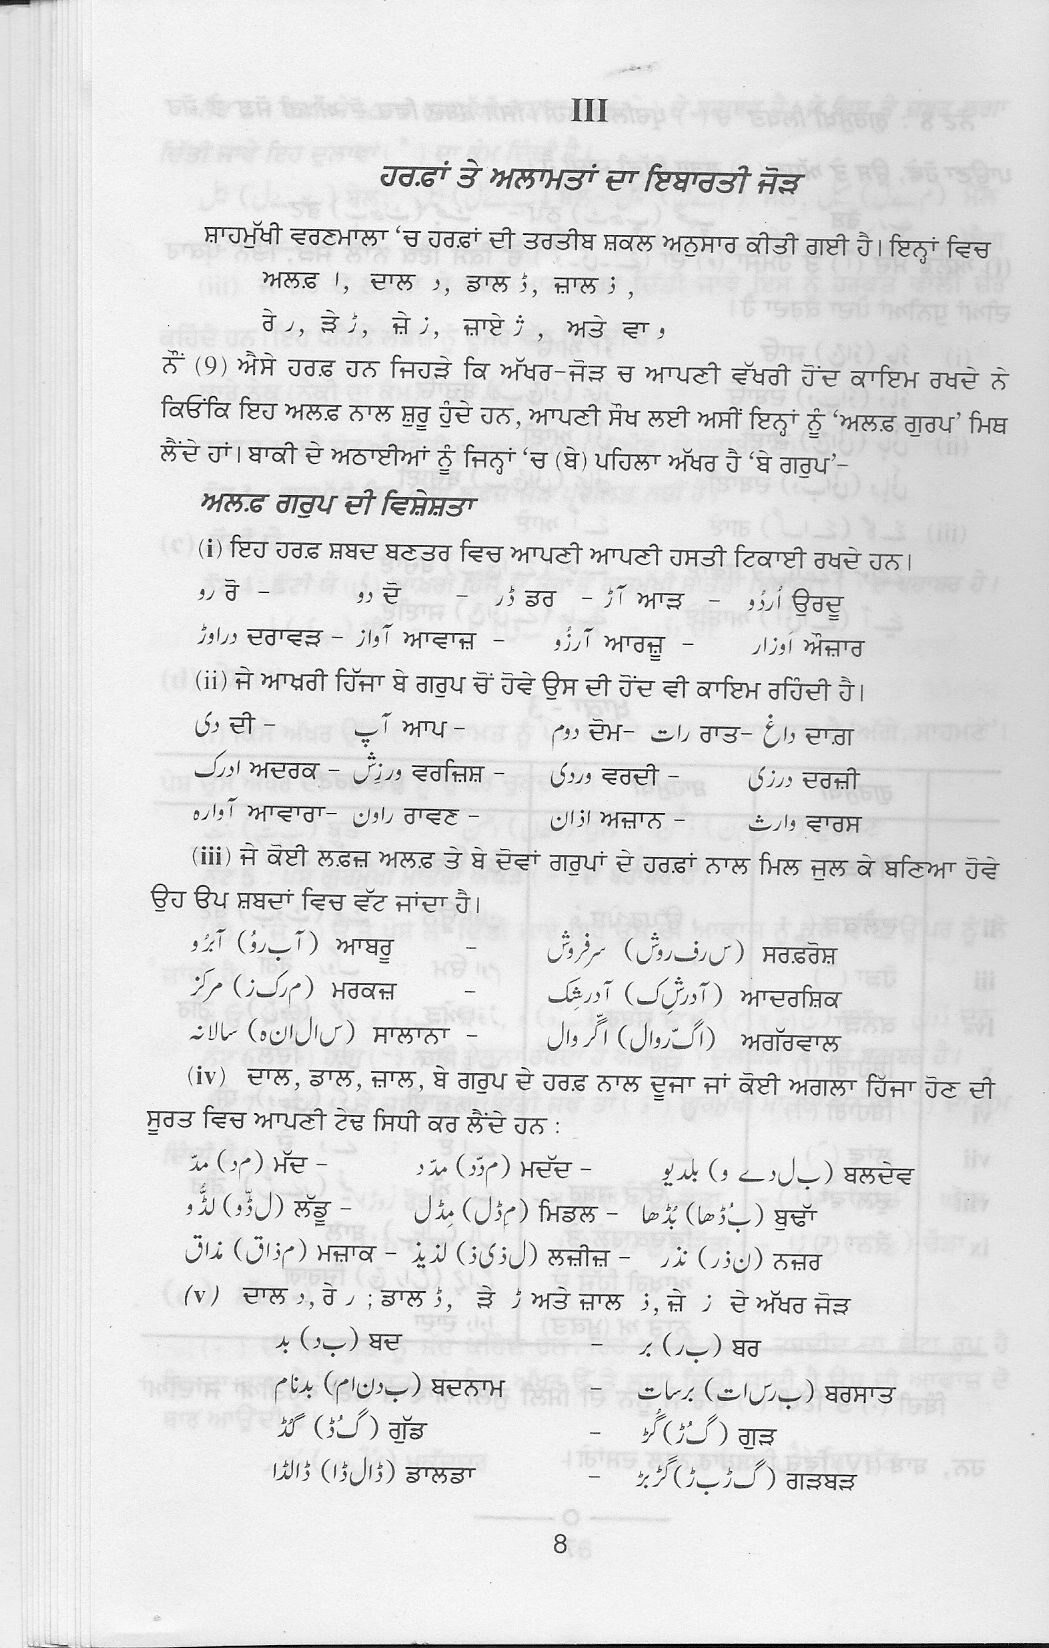 III
ਹਰਫ਼ਾਂ ਤੇ ਅਲਾਮਤਾਂ ਦਾ ਇਬਾਰਤੀ ਜੋੜ
ਸ਼ਾਹਮੁੱਖੀ ਵਰਣਮਾਲਾ ‘ਚ ਹਰਫ਼ਾਂ ਦੀ ਤਰਤੀਬ ਸ਼ਕਲ ਅਨੁਸਾਰ ਕੀਤੀ ਗਈ ਹੈ। ਇਨ੍ਹਾਂ ਵਿਚ
ਅਲਫ਼ ا, ਦਾਲ د, ਡਾਲ ڈ, ਜ਼ਾਲ ذ,
ਰੇ ر, ੜੇ ڑ, ਜ਼ੇ ز, ਜ਼ਾਏ ژ, ਅਤੇ ਵਾ و
ਨੌਂ (9) ਐਸੇ ਹਰਫ਼ ਹਨ ਜਿਹੜੇ ਕਿ ਅੱਖਰ-ਜੋੜ ਚ ਆਪਣੀ ਵੱਖਰੀ ਹੋਂਦ ਕਾਇਮ ਰਖਦੇ ਨੇ
ਕਿਓਂਕਿ ਇਹ ਅਲਫ਼ ਨਾਲ ਸ਼ੁਰੂ ਹੁੰਦੇ ਹਨ, ਆਪਣੀ ਸੌਖ ਲਈ ਅਸੀਂ ਇਨ੍ਹਾਂ ਨੂੰ ‘ਅਲਫ਼ ਗੁਰਪ’ ਮਿਥ
ਲੈਂਦੇ ਹਾਂ। ਬਾਕੀ ਦੇ ਅਠਾਈਆਂ ਨੂੰ ਜਿਨ੍ਹਾਂ ‘ਚ (ਬੇ) ਪਹਿਲਾ ਅੱਖਰ ਹੈ ‘ਬੇ ਗਰੁਪ’-
ਅਲਫ਼ ਗਰੁਪ ਦੀ ਵਿਸ਼ੇਸ਼ਤਾ
(i) ਇਹ ਹਰਫ਼ ਸ਼ਬਦ ਬਣਤਰ ਵਿਚ ਆਪਣੀ ਆਪਣੀ ਹਸਤੀ ਟਿਕਾਈ ਰਖਦੇ ਹਨ।
رو ਰੋ - دو ਦੋ - ڈر ਡਰ - آڑ ਆੜ - اُردُو ਉਰਦੂ
دراوڑ ਦਰਾਵੜ - آواز ਆਵਾਜ਼ - آرزُو ਆਰਜ਼ੂ - اَوزار ਔਜ਼ਾਰ
(ii) ਜੇ ਆਖ਼ਰੀ ਹਿੱਜਾ ਬੇ ਗਰੁਪ ਚੋਂ ਹੋਵੇ ਉਸ ਦੀ ਹੋਂਦ ਵੀ ਕਾਇਮ ਰਹਿੰਦੀ ਹੈ।
دی ਦੀ - آپ ਆਪ - دوم ਦੋਮ- رات ਰਾਤ- داغ ਦਾਗ਼
ادرک ਅਦਰਕ - ورزِش ਵਰਜ਼ਿਸ਼ - وردی ਵਰਦੀ - درزی ਦਰਜ਼ੀ
آوارہ ਆਵਾਰਾ- راون ਰਾਵਣ - اذان ਅਜ਼ਾਨ - وارث ਵਾਰਸ
(iii) ਜੇ ਕੋਈ ਲਫ਼ਜ਼ ਅਲਫ਼ ਤੇ ਬੇ ਦੋਵਾਂ ਗਰੁਪਾਂ ਦੇ ਹਰਫ਼ਾਂ ਨਾਲ ਮਿਲ ਜੁਲ ਕੇ ਬਣਿਆ ਹੋਵੇ
ਉਹ ੳਪ ਸ਼ਬਦਾਂ ਵਿਚ ਵੱਟ ਜਾਂਦਾ ਹੈ।
آبرُو (آ ب رُو) ਆਬਰੂ - سرفروش (س ر ف روش) ਸਰਫ਼ਰੋਸ਼
مرکز (م ر ک ز) ਮਰਕਜ਼ - آدرشِک (آ در شِ ک) ਆਦਰਸ਼ਿਕ
سالانہ (س ا ل ا ن ہ) ਸਾਲਾਨਾ - اگّروال (ا گّ ر وال) ਅਗੱਰਵਾਲ
(iv) ਦਾਲ, ਡਾਲ, ਜ਼ਾਲ, ਬੇ ਗਰੁਪ ਦੇ ਹਰਫ਼ ਨਾਲ ਦੂਜਾ ਜਾਂ ਕੋਈ ਅਗਲਾ ਹਿੱਜਾ ਹੋਣ ਦੀ
ਸੂਰਤ ਵਿਚ ਆਪਣੀ ਟੇਢ ਸਿਧੀ ਕਰ ਲੈਂਦੇ ਹਨ :
مدّ (م د) ਮੱਦ - مدّد (م دّ د) ਮਦੱਦ - بلدیو (ب ل دے و) ਬਲਦੇਵ
لڈُّو (ل ڈّو) ਲੱਡੂ - مِڈل (مِ ڈل) ਮਿਡਲ - بُڈھا (بُ ڈھا) ਬੁਢਾੱ
مذاق (م ذاق) ਮਜ਼ਾਕ - لذیذ (ل ذی ذ) ਲਜ਼ੀਜ਼ - نذر (ن ذر) ਨਜ਼ਰ
(v) ਦਾਲ د, ਰੇ ر ; ਡਾਲ ڈ, ੜੇ ڑ ਅਤੇ ਜ਼ਾਲ ذ, ਜ਼ੇ ز ਦੇ ਅੱਖਰ ਜੋੜ
بد (ب د) ਬਦ - بر (ب ر) ਬਰ
بدنام (ب د ن ا م) ਬਦਨਾਮ - برسات (ب ر س ا ت) ਬਰਸਾਤ
گُڈ (گُ ڈ) ਗੁੱਡ - گُڑ (گُ ڑ) ਗੁੜ
ڈالڈا (ڈا ل ڈا) ਡਾਲਡਾ - گڑبڑ (گ ڑ ب ڑ) ਗੜਬੜ
8